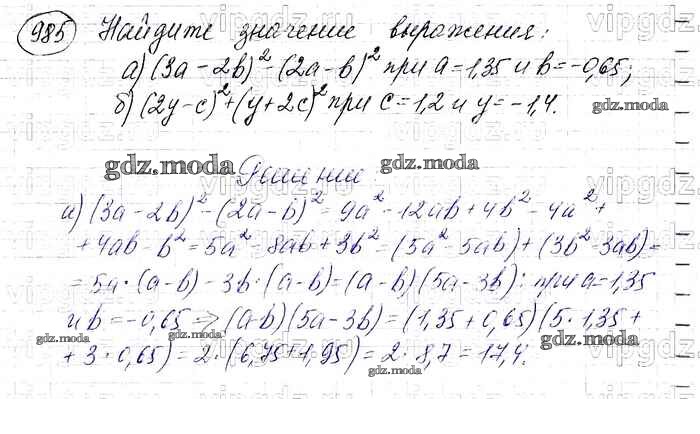 985 Найдите значение выражения:
а) (3a - 2b)² - (2a - b)² при a = 1,35 и b = -0,65;
б) (2y - c)² + (y + 2c)² при c = 1,2 и y = -1,4.
Решение
а) (3a - 2b)² - (2a - b)² = 9a² - 12ab + 4b² - 4a² +
+ 4ab - b² = 5a² - 8ab + 3b² = (5a² - 5ab) + (3b² - 3ab) =
= 5a · (a - b) - 3b · (a - b) = (a - b)(5a - 3b); при a = 1,35
и b = -0,65 ⇒ (a - b)(5a - 3b) = (1,35 + 0,65)(5 · 1,35 +
+ 3 · 0,65) = 2 · (6,75 + 1,95) = 2 · 8,7 = 17,4.
gdz.moda
gdz.moda
gdz.moda
gdz.moda
gdz.moda
gdz.moda
gdz.moda
vipgdz